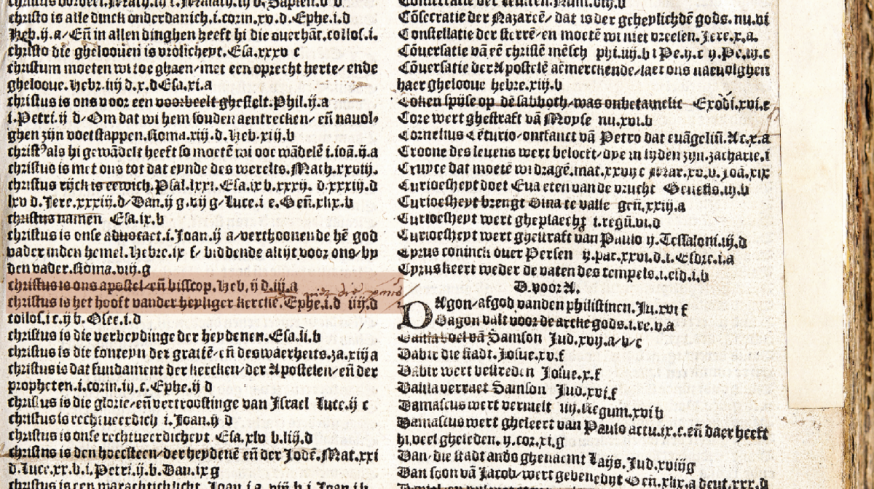 christus is alle dinck onderdanich.i.corin.xv.d.Ephe.i.d
Heb.ij.a/Eñ in allen dinghen heeft hi die ouerhãt.collos.i.
christo die gheloouen is vrolicheyt.Esa.xxxv c
christum moeten wi toe ghaen/met een oprecht herte/ende
gheloove.Hebr.iiij d.x.d Esa.xi.a
christus is ons voor een voorbeelt ghestelt.Phil.ij.a
i.Petri.ij d/Om dat wi hem souden aentrecken/eñ nauol/
ghen zijn voetstappen.Roma.xiij.d.Heb.xij.b
christ⁹ als hi gewãdelt heeft so moetẽ wi ooc wãdelẽ i.ioã.ij.a
christus is met ons tot dat eynde des werelts.Math.xxviij.
christus rijck is eewich.Psal.lxxi.Esa.ix b.xxxij. d.xxxiij.d
lxv d.Jere.xxxiij.d/Dan.ij g.vij g/Luce.i e.Geñ.xlix.b
christus namen Esa.ix.b
christus is onse aduocaet.i.Joan.ij a/verthoonende hẽ god
vader inden hemel.Hebre.ix f/biddende altijt voor ons/by
den vader.Roma.viij.g
christus is ons apostel eñ bisscop.Heb.ij d.iij.a
christus is het hooft vander heyliger kercke.Ephe.i.d iiij.d
collos.i c.ij b.Osee.i.d
christus is die verbeydinge der heydenen.Esa.li.b
christus is die fonteyn der gratiẽ/eñ des waerheits.za.xiij a
christus is dat fundament der kercken/der Apostelen/eñ der
propheten.i.corin.iij.c.Ephe.ij d
christus is die glorie/eñ vertroostinge van Israel Luce.ij c
christus is rechtuerdich i.Joan.ij d
christus is onse rechtuerdicheyt.Esa.xlv b.liij.d
christus is den hoecsteen/der heydenẽ eñ der Jodẽ.Mat.xxi
d.Luce.xx.b.i.Petri.ij.b.Dan.ix g
Cõsecratie der Nazareẽ/dat is der gheheylichdẽ gods.nu.vi
Constellatie der sterrẽ/en moetẽ wi niet vreesen.Jere.x.a.
Cõuersatie vã rẽ christẽ mẽsch phi.iij.b i Pe.ij.c ij.Pe.iij.c
Cõuersatie der Apostelẽ aẽmerckende/laet ons nauolghen
haer gheloove hebre.xiij.b
Coken spijse op dẽ sabboth/was onbetamelic Exodi.xvi.e
Core wert ghestraft vã Moyse nu.xvi.b
Cornelius cẽturio/ontfanct vã Petro dat euãgeliũ.Ac.x.a
Croone des leuens wert beloeft/dye in lijden zijn.zacharie.i
Cruyce dat moetẽ wi dragẽ.mat.xxvij c Mar.xv.b.Joã.xix
Curiosheyt doet Eua eten van de vrucht Genesis.iij.b
Curiosheyt brengt Dina te valle geñ.xxiiij.a
Curiosheyt wert gheplaecht i.regũ.vi.d
Curiosheyt wert ghestraft vã Paulo ij.Tessaloni.iij.d
Cyrus coninck ouer Persen ij.par.xxvi.d i.Esdre.i.a
Cyrus keert weder de vaten des tempels.i.esd.i.b
D.voor A.
DAgon/afgod vanden philistinen.Ju.xvi f
Dagon valt voor de arcke gods.i.re.v.a
Dalila boel vã Samson Jud.xvij.a/b/c
Dabir die stadt.Josue.xv.f
Dabir wert bestreden Josue.x.f
Dalila verraet Samson Jud.xvi.f
Damascus wert vernielt iiij.Regum.xvi b
Damascus wert gheleert van Paulo actu.ix.e.eñ daer heeft
hi veel gheleden.ij.cor.xi.g
Dan/die stadt ando ghenaemt Lays.Jud.xviij g
Dan soon vã Jacob/wert gebenedijt Geñ.xlix.a deut.xxx.d